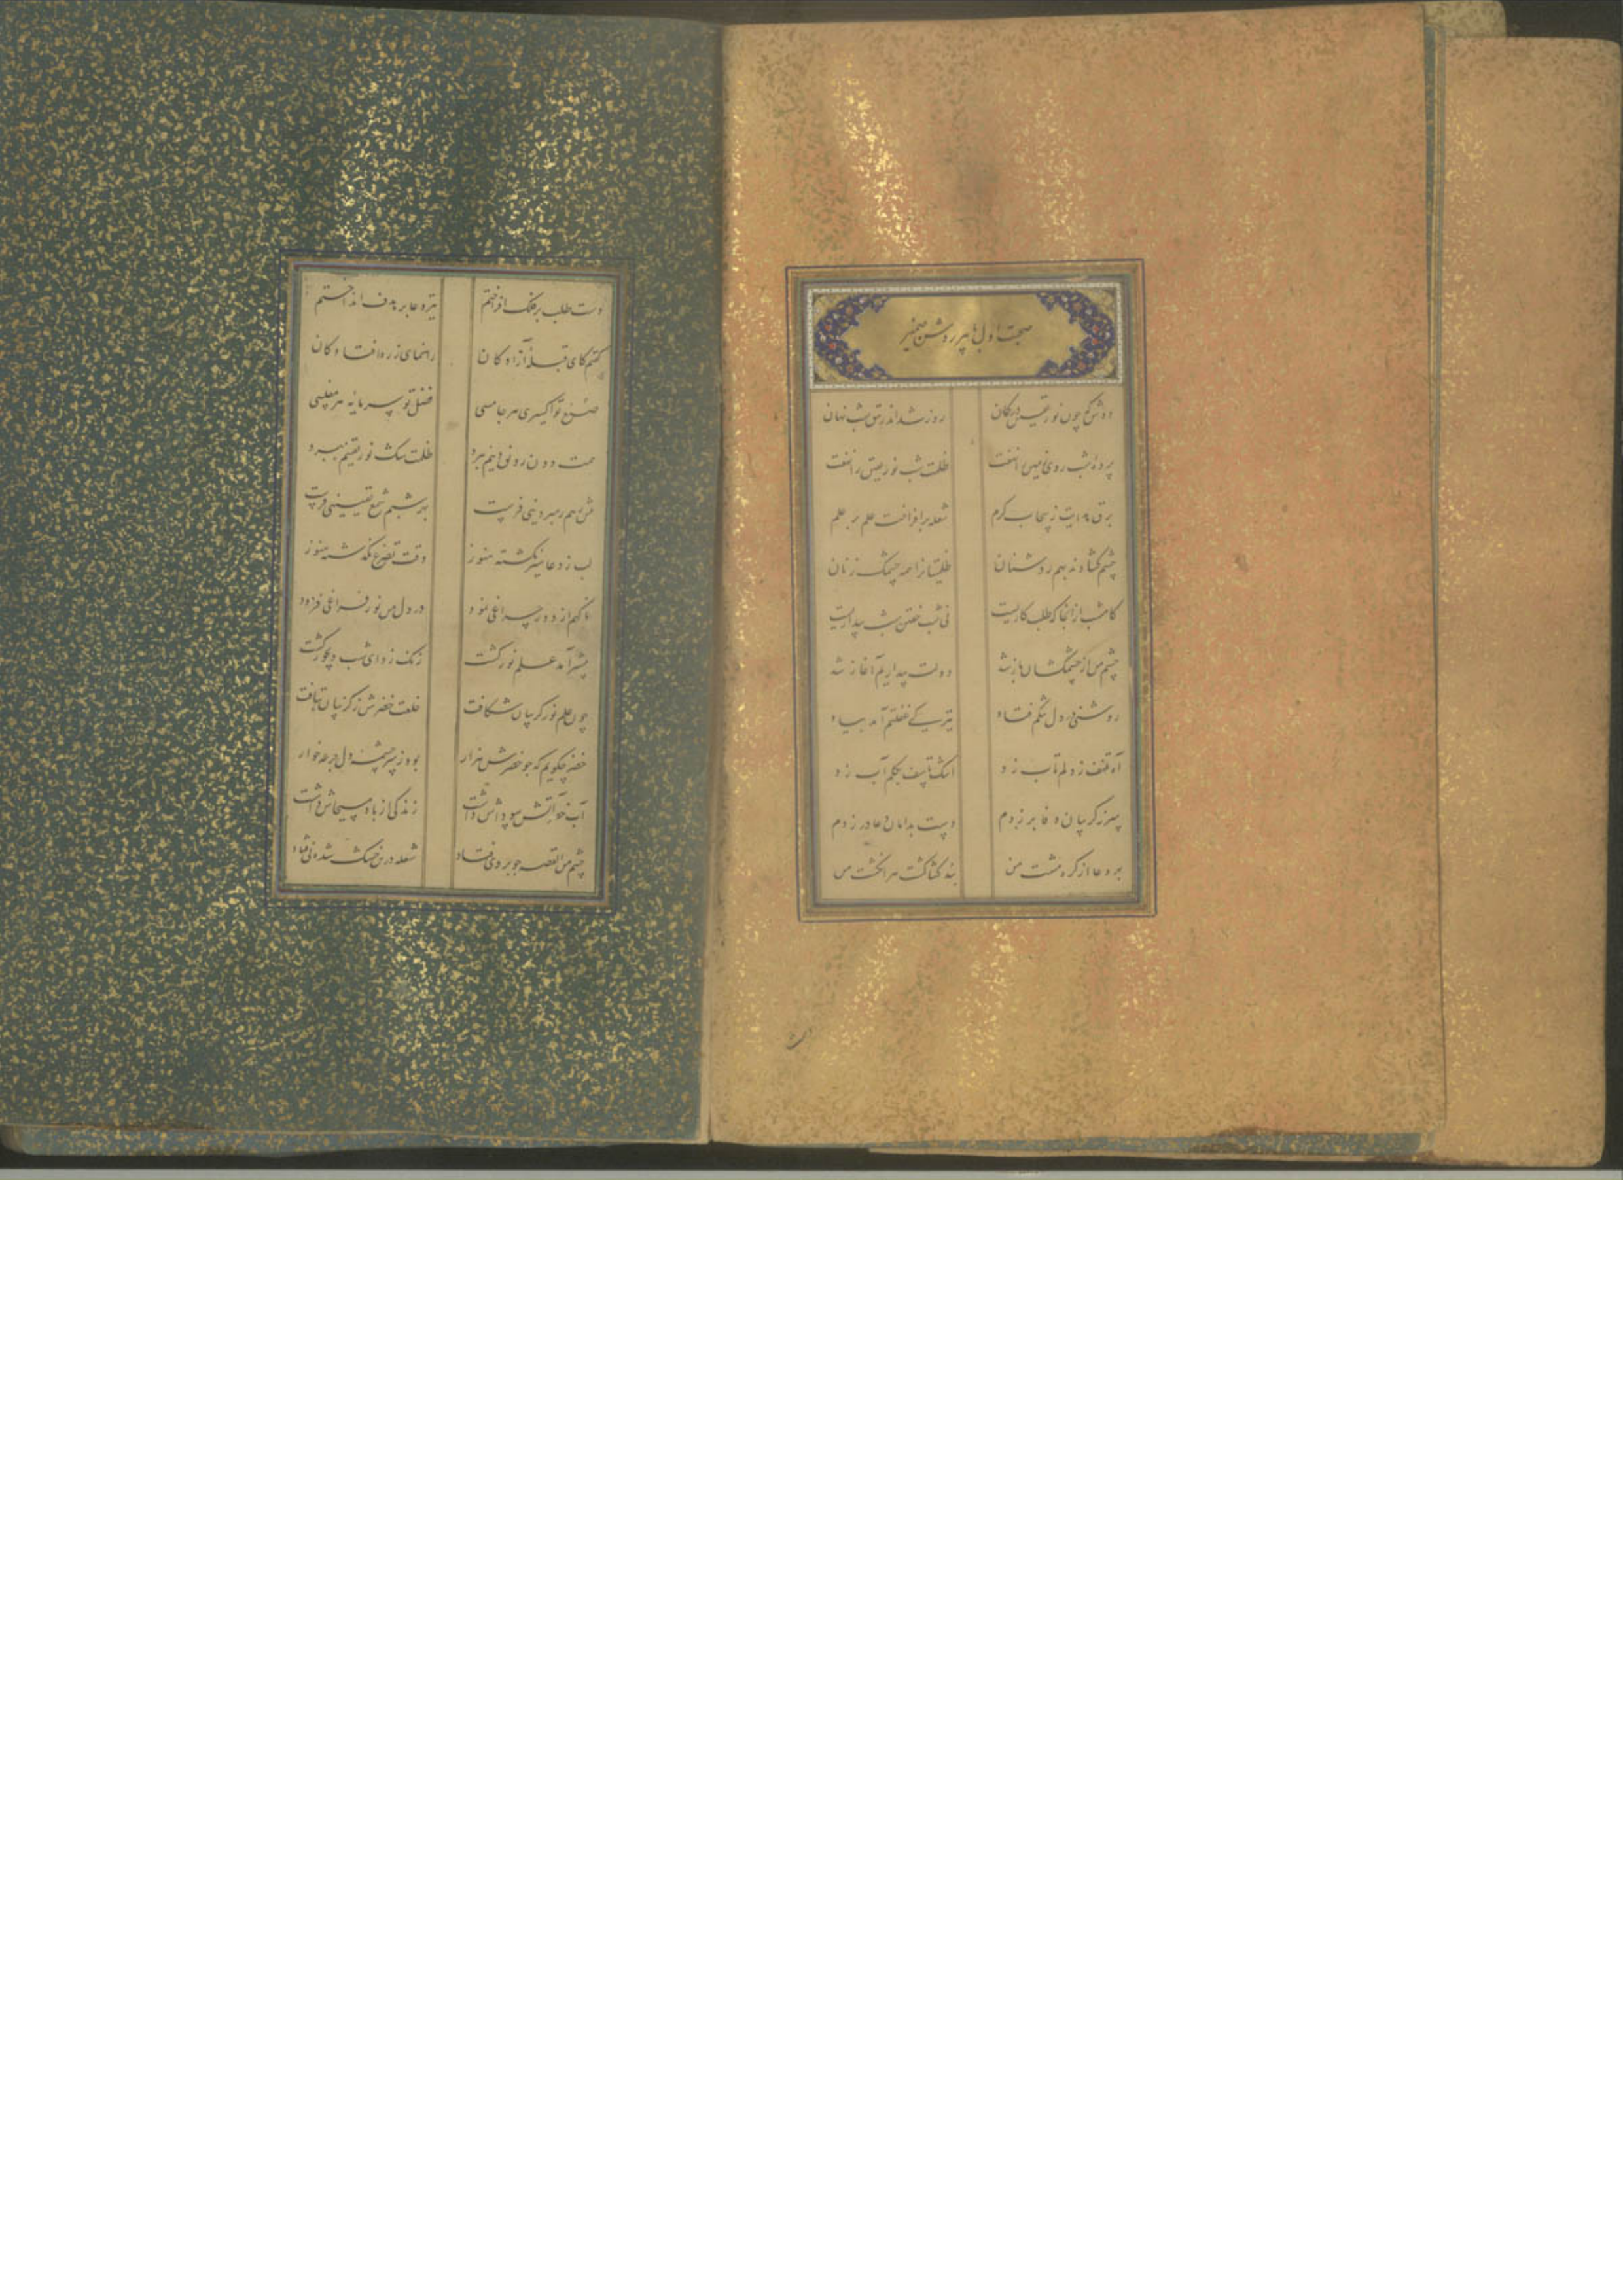 صحبت اول با پیر روشن ضمیر
دوش که چون نور یقین در گمان روز شد اندر تتق شب نهان
پرده شب روی زمین را نهفت ظلمت شب نور یقین را نهفت
برق هدایت ز سحاب کرم شعله برافراخت علم بر علم
چشم گشادند بهم روشنان طلیت از همه چشمک زنان
کامشب از آنجا که طلب کاریست نی شب خفتن شب بیداریست
چشم من از چشمکشان باز شد دولت بیداریم آغاز شد
روشنی در دل تنگم فتاد تیرگی غفلتم آمد بیاد
آه تلهف ز دلم تاب زد اشک تأسف بگلم آب زد
سر ز گریبان وفا بر زدم دست بدامان دعا در زدم
بر دعا از گره مشت من بند گشا گشت سر انگشت من
دست طلب بر فلک افراختم تیر دعا بر هدف انداختم
گفتم کای قبله آزادگان راهنمای ز ره افتادگان
صنع تو اکسیری هر جا مسی فضل تو سرمایه هر مفلسی
همت دونان رونق دینم ببرد ظلمت شک نور یقینم ببرد
پیش رهم رهبر دینی فرست بهر شبم شمع یقینی فرست
لب ز دعا سیر نگشته هنوز وقت تضرع نگذشته هنوز
ناگهم از دور چراغی نمود در دل من نور فراغی فزود
پیشتر آمد علم نور گشت زنگ زدای شب دیجور گشت
چون علم نور گریبان شکافت خلعت خضرش ز گریبان بتافت
خضر چگویم که چو خضرش هزار بود ز سرچشمه دل جرعه خوار
آب خود آتش سوداش داشت زندگی از باد مسیحاش داشت
چشم من القصه چو بر وی فتاد شعله در من خشک شده نی فتاد